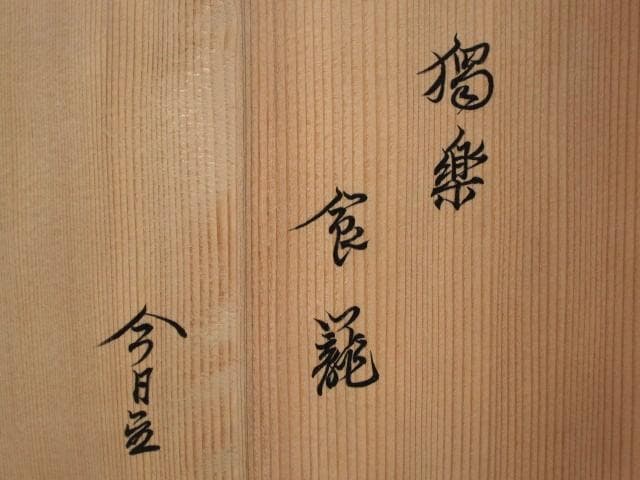 獨樂
食籠
今日立